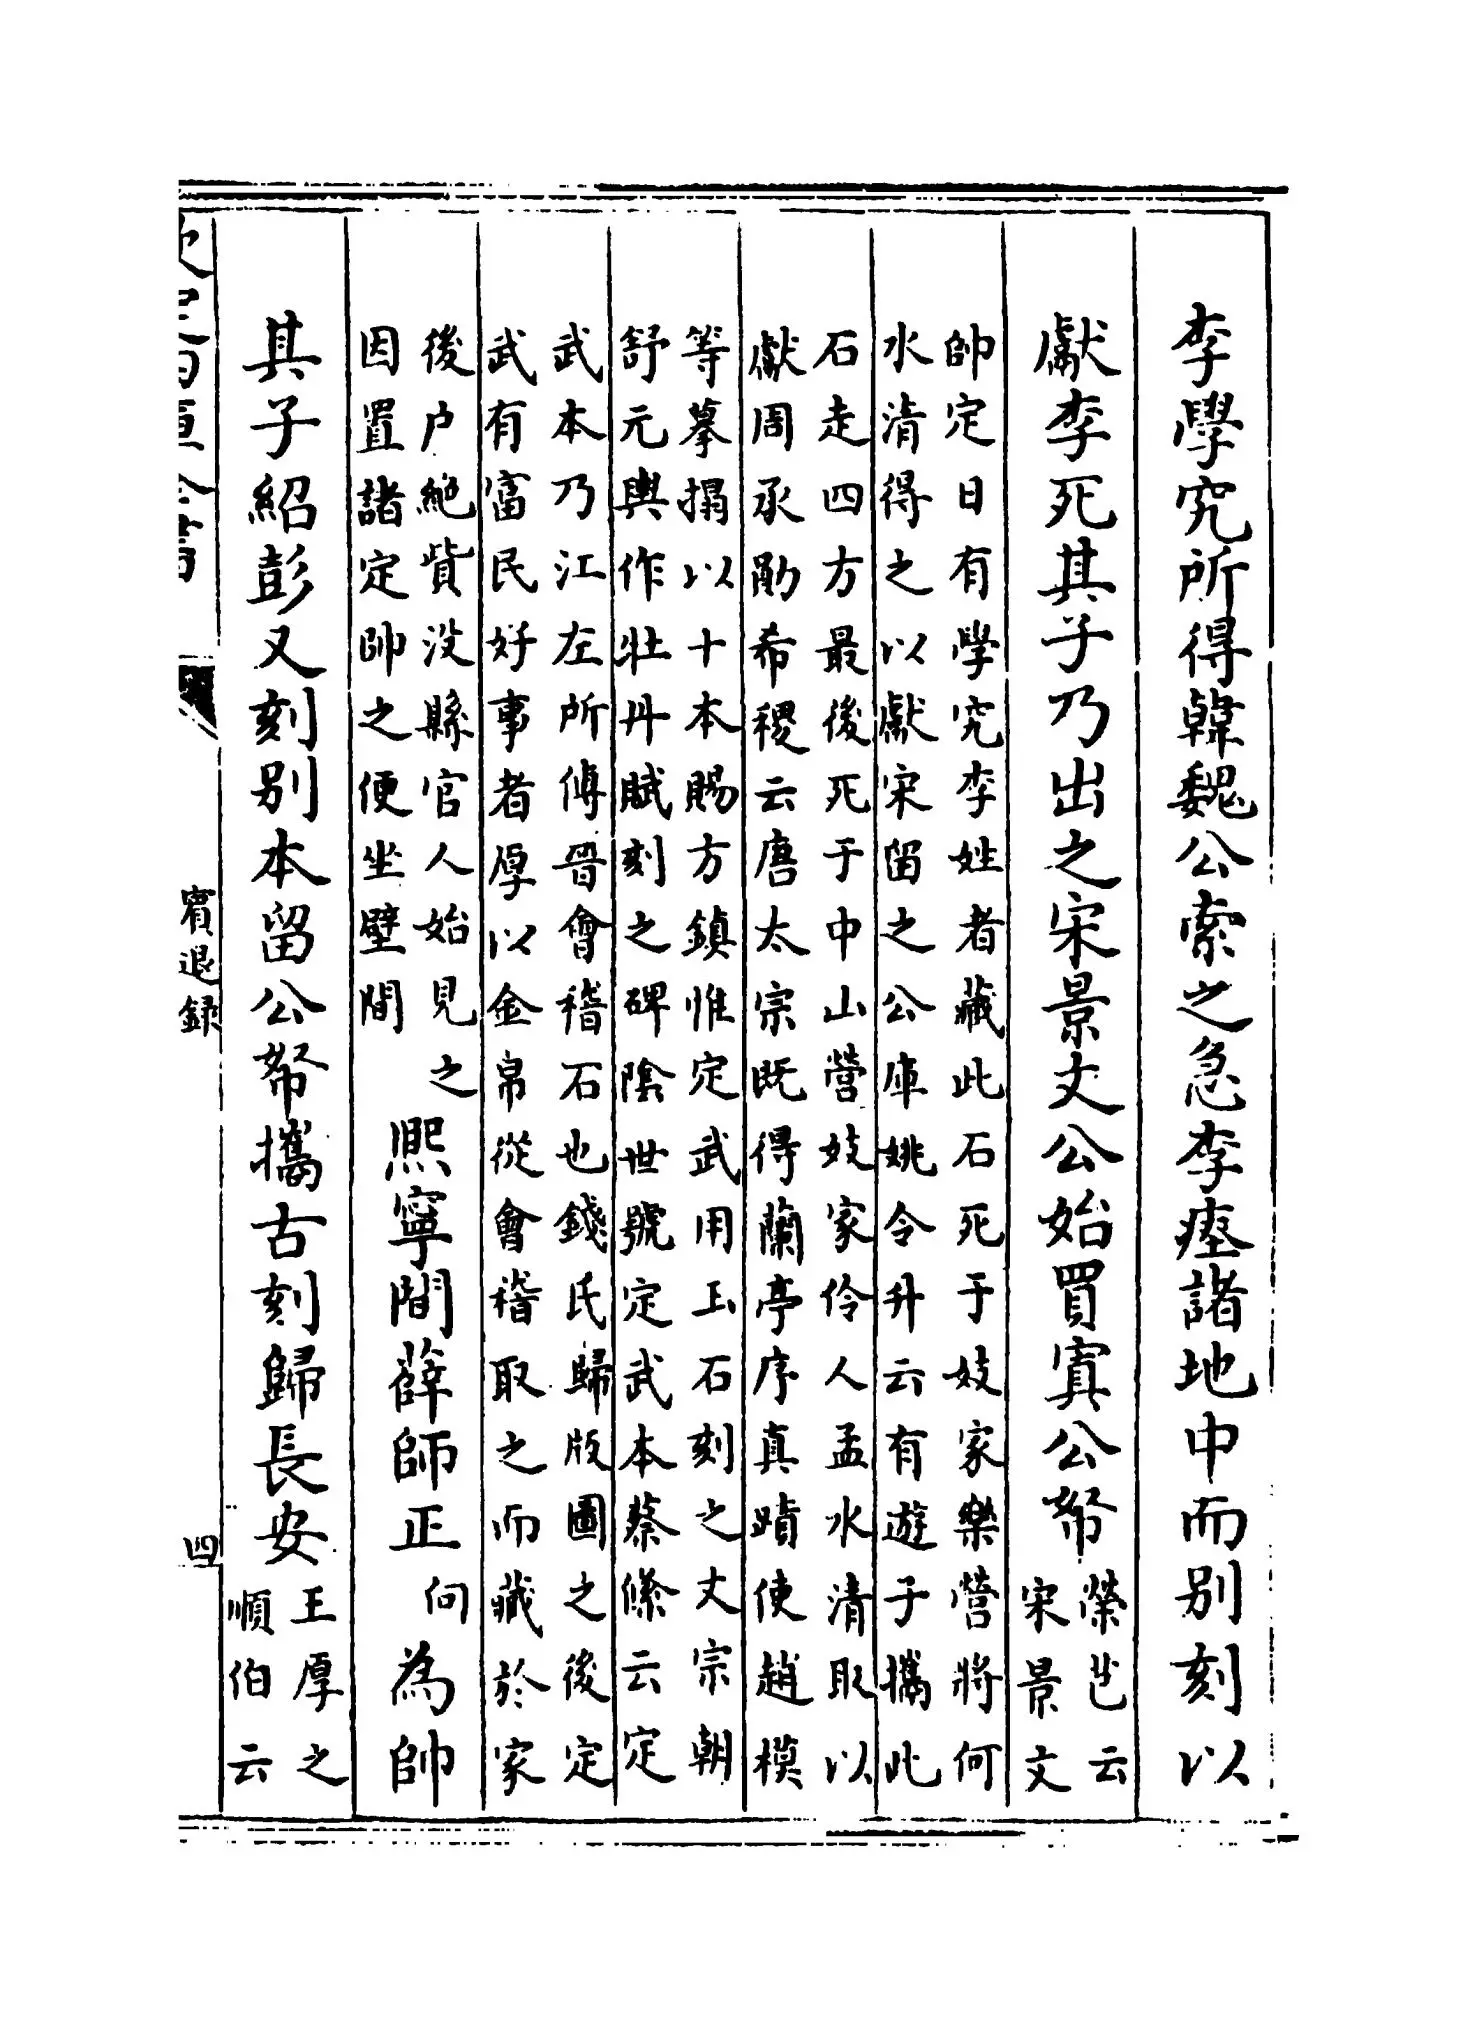 李學究所得韓魏公索之急李瘞諸地中而别刻以
獻李死其子乃出之宋景文公始買寘公帑榮芑云
宋景文
帥定日有學究李姓者藏此石死于妓家樂營將何
水清得之以獻宋留之公庫姚令升云有遊子攜此
石走四方最後死于中山營妓家伶人孟水清取以
獻周承勛希稷云唐太宗既得蘭亭序真蹟使趙模
等摹搨以十本賜方鎮惟定武用玉石刻之文宗朝
舒元輿作牡丹賦刻之碑陰世號定武本蔡絛云定
武本乃江左所傳晉會稽石也錢氏歸版圖之後定
武有富民好事者厚以金帛從會稽取之而藏於家
後户絶貲没縣官人始見之
因置諸定帥之便坐壁間
熙寧間薛師正向為帥
其子紹彭又刻别本留公帑攜古刻歸長安王厚之
順伯云
欽定四庫全書
賓退録
四